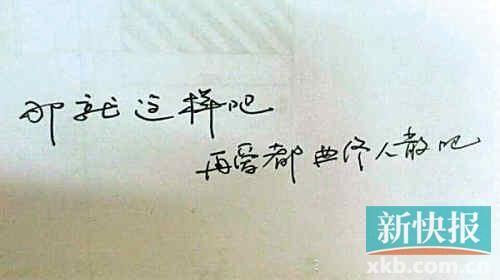 那就这样吧
再爱都曲终人散吧
新快报
xkb.com.cn